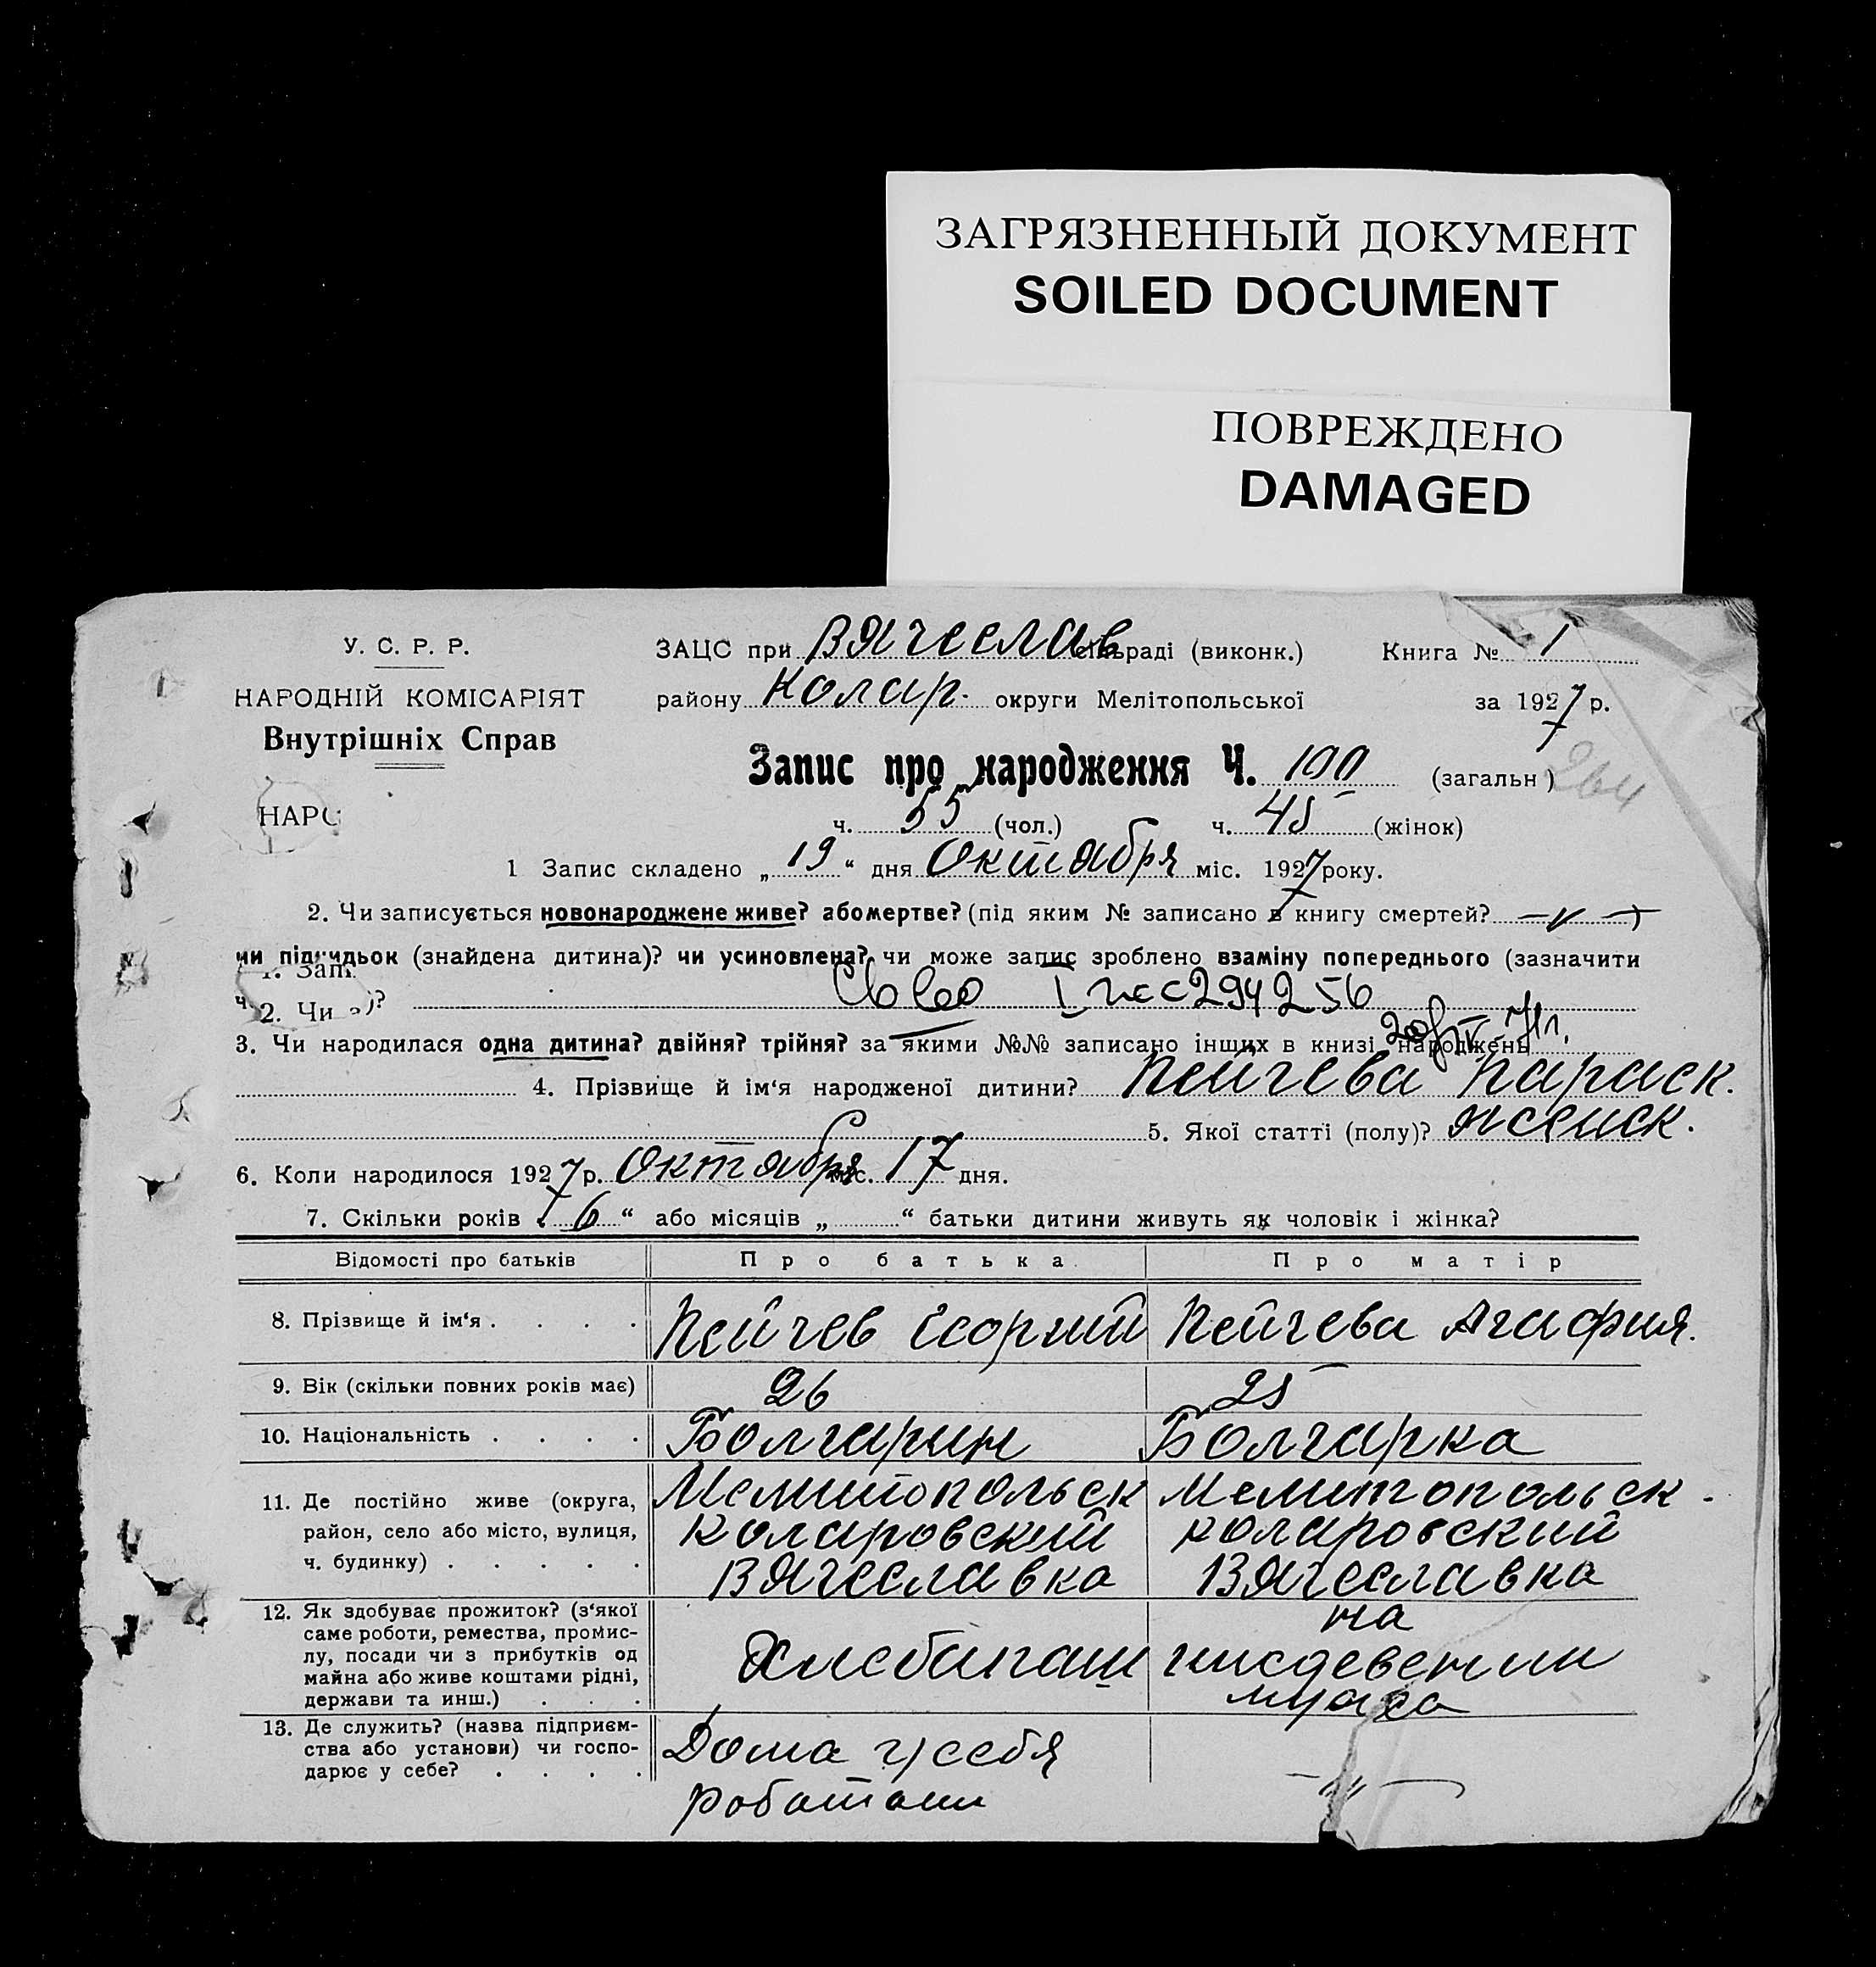 ЗАГРЯЗНЕННЫЙ ДОКУМЕНТ
SOILED DOCUMENT
ПОВРЕЖДЕНО
DAMAGED
У. С. Р. Р.
НАРОДНІЙ КОМІСАРІЯТ
Внутрішніх Справ
НАРО
ЗАЦС при Вячеслав сільраді (виконк.) Книга № 1
району Колар. округи Мелітопольської за 1927 р.
Запис про народження Ч. 100 (загальн )
264
ч. 55 (чол.) ч. 45 (жінок)
1 Запис складено „ 19 “ дня Октября міс. 1927 року.
2. Чи записується новонароджене живе? або мертве? (під яким № записано в книгу смертей?
чи підкидьок (знайдена дитина)? чи усиновлена? чи може запис зроблено взаміну попереднього (зазначити
1. Запи
2. Чи з )? 294256
3. Чи народилася одна дитина? двійня? трійня? за якими №№ записано інших в книзі народжень
4. Прізвище й ім'я народженої дитини? Пейчева Параск.
5. Якої статті (полу)? женск.
6. Коли народилося 1927 р. Октября міс. 17 дня.
7. Скільки років „ 6 “ або місяців „ “ батьки дитини живуть як чоловік і жінка?
Відомості про батьків Про батька Про матір
8. Прізвище й ім'я . . . . Пейчев Георгий Пейчева Агафия.
9. Вік (скільки повних років має) 26 25
10. Національність . . . . Болгарин Болгарка
11. Де постійно живе (округа, Мелитопольск Мелитопольск.
район, село або місто, вулиця, Коларовский Коларовский
ч. будинку) . . . . . Вячеславка Вячеславка
12. Як здобуває прожиток? (з'якої на
саме роботи, ремества, промис-
лу, посади чи з прибутків од Хлебопаш иждевении
майна або живе коштами рідні, мужа
держави та инш.) . . .
13. Де служить? (назва підприєм-
ства або установи) чи госпо- Дома у себя
дарює у себе? . . . . работаиш -„-